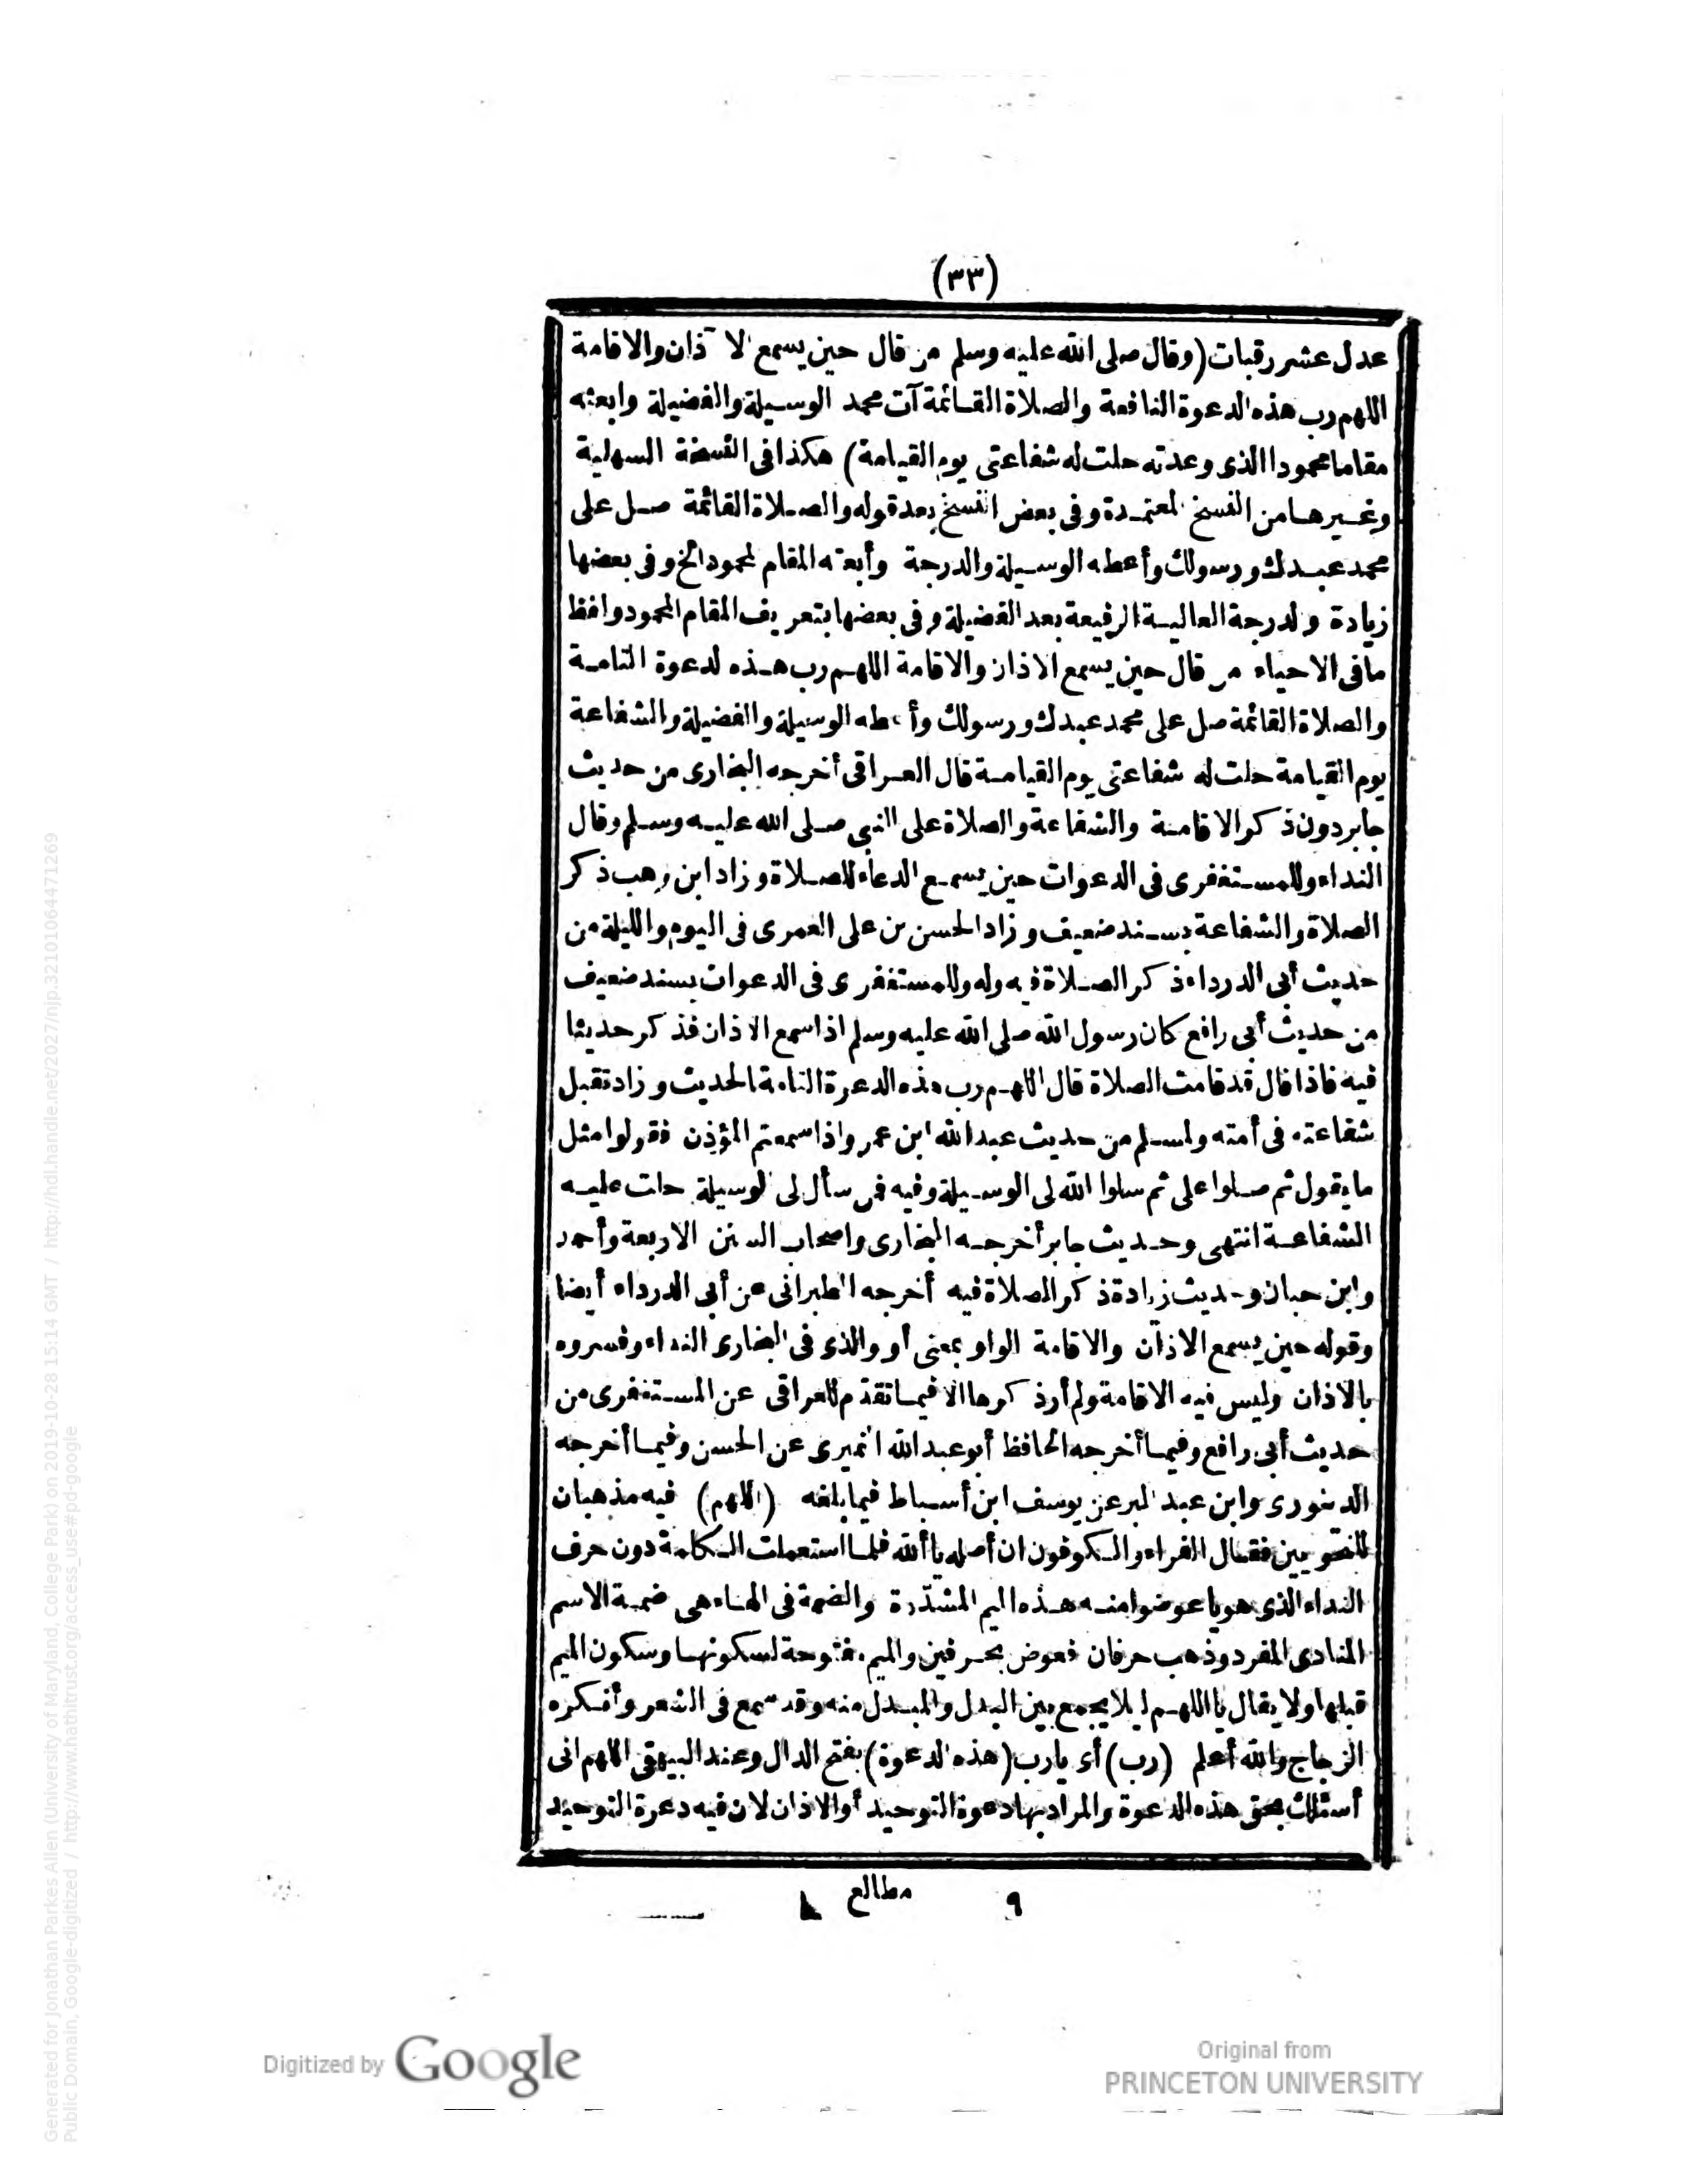 (٣٣)
عدل عشر رقبات (وقال صلى الله عليه وسلم من قال حين يسمع الآذان والاقامة
اللهم رب هذه الدعوة النافعة والصلاة القائمة آت محمد الوسيلة والفضيلة وابعثه
مقاما محمودا الذى وعدته حلت له شفاعتى يوم القيامة) هكذا فى النسخة السهلية
وغيرها من النسخ المعتمدة وفى بعض النسخ بعد قوله والصلاة القائمة صل على
محمد عبدك ورسولك وأعطه الوسيلة والدرجة وأبعثه المقام المحمود الخ وفى بعضها
زيادة والدرجة العالية الرفيعة بعد الفضيلة وفى بعضها بتعريف المقام المحمود ولفظ
مافى الاحياء من قال حين يسمع الاذان والاقامة اللهم رب هذه لدعوة التامة
والصلاة القائمة صل على محمد عبدك ورسولك وأعطه الوسيلة والفضيلة والشفاعة
يوم القيامة حلت له شفاعتى يوم القيامة قال العراقى أخرجه البخارى من حديث
جابر دون ذكر الاقامة والشفاعة والصلاة على النبى صلى الله عليه وسلم وقال
النداء وللمستغفرى فى الدعوات حين يسمع الدعاء للصلاة وزاد ابن وهب ذكر
الصلاة والشفاعة بسند ضعيف وزاد الحسن بن على العمرى فى اليوم والليلة من
حديث أبى الدرداء ذكر الصلاة فيه وله وللمستغفرى فى الدعوات بسند ضعيف
من حديث أبى رافع كان رسول الله صلى الله عليه وسلم اذا سمع الاذان فذكر حديثا
فيه فاذا قال قد قامت الصلاة قال اللهم رب هذه الدعوة التامة الحديث وزاد تقبل
شفاعته فى أمته ولمسلم من حديث عبد الله ابن عمر واذا سمعتم المؤذن فقولوا مثل
ما يقول ثم صلوا على ثم سلوا الله لى الوسيلة وفيه فمن سأل لى الوسيلة حلت عليه
الشفاعة انتهى وحديث جابر أخرجه البخارى واصحاب السنن الاربعة وأحمد
وابن حبان وحديث زيادة ذكر الصلاة فيه أخرجه الطبرانى عن أبى الدرداء أيضا
وقوله حين يسمع الاذان والاقامة الواو بمعنى أو والذى فى البخارى النداء وفسروه
بالاذان وليس فيه الاقامة ولم أر ذكرها الا فيما تقدم للعراقى عن المستغفرى من
حديث أبى رافع وفيما أخرجه الحافظ أبو عبد الله النميرى عن الحسن وفيما أخرجه
الدينورى وابن عبد البر عن يوسف ابن أسباط فيما بلغه (اللهم) فيه مذهبان
للنحويين فقال الفراء والكوفون ان أصله يا ألله فلما استعملت الكلمة دون حرف
النداء الذى هو يا عوضوا منه هذه الميم المشدّدة والضمة فى الهاء هى ضمة الاسم
المنادى المفرد وذهب حرفان فعوض بحرفين والميم مفتوحة لسكونها وسكون الميم
قبلها ولا يقال يا اللهم ليلا يجمع بين البدل والمبدل منه وقد سمع فى الشعر وأنكره
الزجاج والله أعلم (رب) أى يارب (هذه لدعوة) بفتح الدال وعند البيهقى اللهم انى
أسئلك بحق هذه الدعوة والمراد بها دعوة التوحيد أو الاذان لان فيه دعوة التوحيد
٩ مطالع
Digitized by Google
Original from
PRINCETON UNIVERSITY
Generated for Jonathan Parkes Allen (University of Maryland, College Park) on 2019-10-28 15:14 GMT / http://hdl.handle.net/2027/njp.32101064471269
Public Domain, Google-digitized / http://www.hathitrust.org/access_use#pd-google